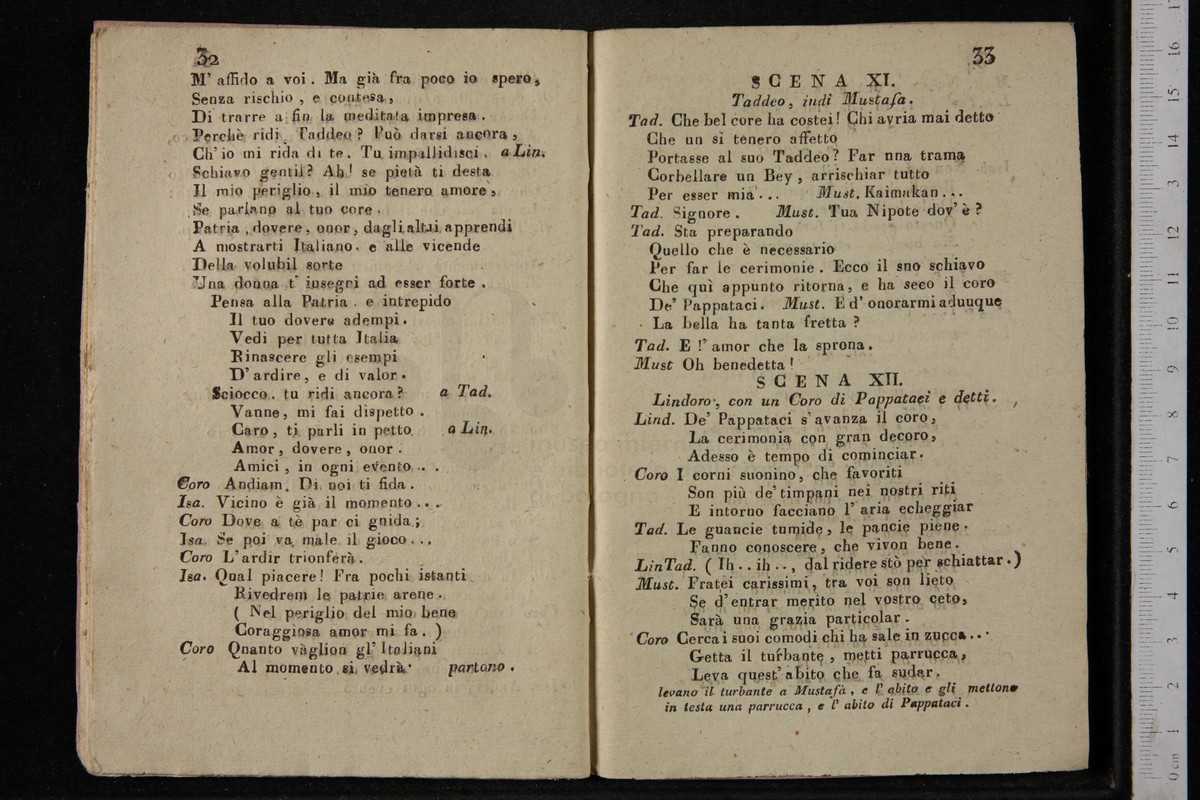 32
M' affido a voi. Ma già fra poco io spero,
Senza rischio, e contesa,
Di trarre a fin la meditata impresa.
Perchè ridi, Taddeo? Può darsi ancora,
Ch' io mi rida di te. Tu impallidisci, a Lin.
Schiavo gentil? Ah! se pietà ti desta
Il mio periglio, il mio tenero amore,
Se parlano al tuo core.
Patria, dovere, onor, dagli altri apprendi
A mostrarti Italiano, e alle vicende
Della volubil sorte
Una donna t' insegni ad esser forte.
Pensa alla Patria, e intrepido
Il tuo dovere adempi.
Vedi per tutta Italia
Rinascere gli esempi
D' ardire, e di valor.
Sciocco, tu ridi ancora? a Tad.
Vanne, mi fai dispetto.
Caro, ti parli in petto a Lin.
Amor, dovere, onor.
Amici, in ogni evento ...
Coro Andiam. Di noi ti fida.
Isa. Vicino è già il momento ...
Coro Dove a tè par ci guida;
Isa. Se poi va male il gioco ...
Coro L' ardir trionferà.
Isa. Qual piacere! Fra pochi istanti
Rivedrem le patrie arene.
( Nel periglio del mio bene
Coraggiosa amor mi fa. )
Coro Quanto vaglion gl' Italiani
Al momento si vedrà. partono.
33
SCENA XI.
Taddeo, indi Mustafa.
Tad. Che bel core ha costei! Chi avria mai detto
Che un sì tenero affetto
Portasse al suo Taddeo? Far nna trama
Corbellare un Bey, arrischiar tutto
Per esser mia ... Must. Kaimakan ...
Tad. Signore. Must. Tua Nipote dov' è?
Tad. Sta preparando
Quello che è necessario
Per far le cerimonie. Ecco il sno schiavo
Che quì appunto ritorna, e ha seco il coro
De' Pappataci. Must. E d' onorarmi adunque
La bella ha tanta fretta?
Tad. E l' amor che la sprona.
Must Oh benedetta!
SCENA XII.
Lindoro, con un Coro di Pappataci e detti.
Lind. De' Pappataci s' avanza il coro,
La cerimonia con gran decoro,
Adesso è tempo di cominciar.
Coro I corni suonino, che favoriti
Son più de' timpani nei nostri riti
E intorno facciano l' aria echeggiar
Tad. Le guancie tumide, le pancie piene.
Fanno conoscere, che vivon bene.
LinTad. ( Ih .. ih .., dal ridere stò per schiattar.)
Must. Fratei carissimi, tra voi son lieto
Se d' entrar merito nel vostro ceto,
Sarà una grazia particolar.
Coro Cerca i suoi comodi chi ha sale in zucca...
Getta il turbante, metti parrucca,
Leva quest' abito che fa sudar.
levano il turbante a Mustafà, e l' abito e gli mettono
in testa una parrucca, e l' abito di Pappataci.